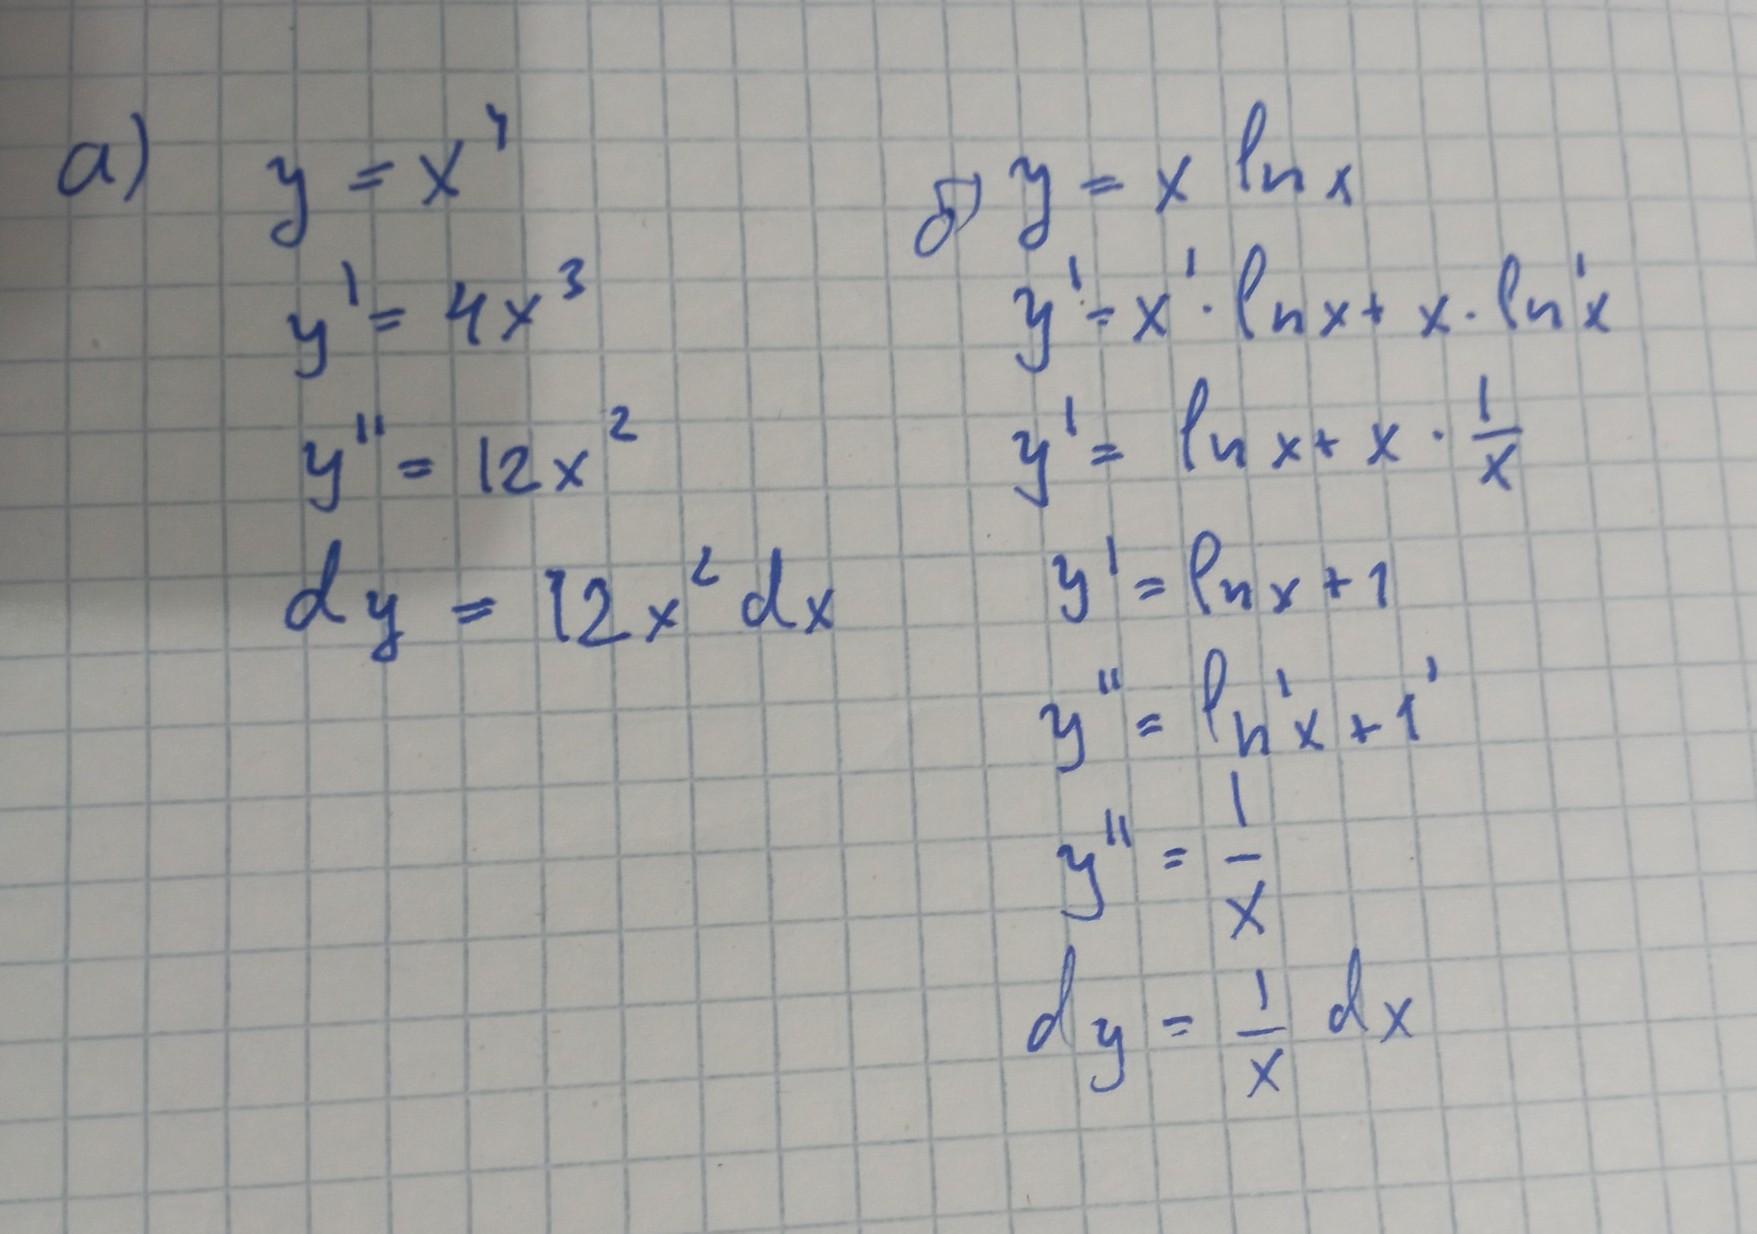 а) y = x⁴
y' = 4x³
y'' = 12x²
dy = 12x² dx
б) y = x ln x
y' = x' · ln x + x · ln' x
y' = ln x + x · 1/x
y' = ln x + 1
y'' = ln' x + 1'
y'' = 1/x
dy = 1/x dx